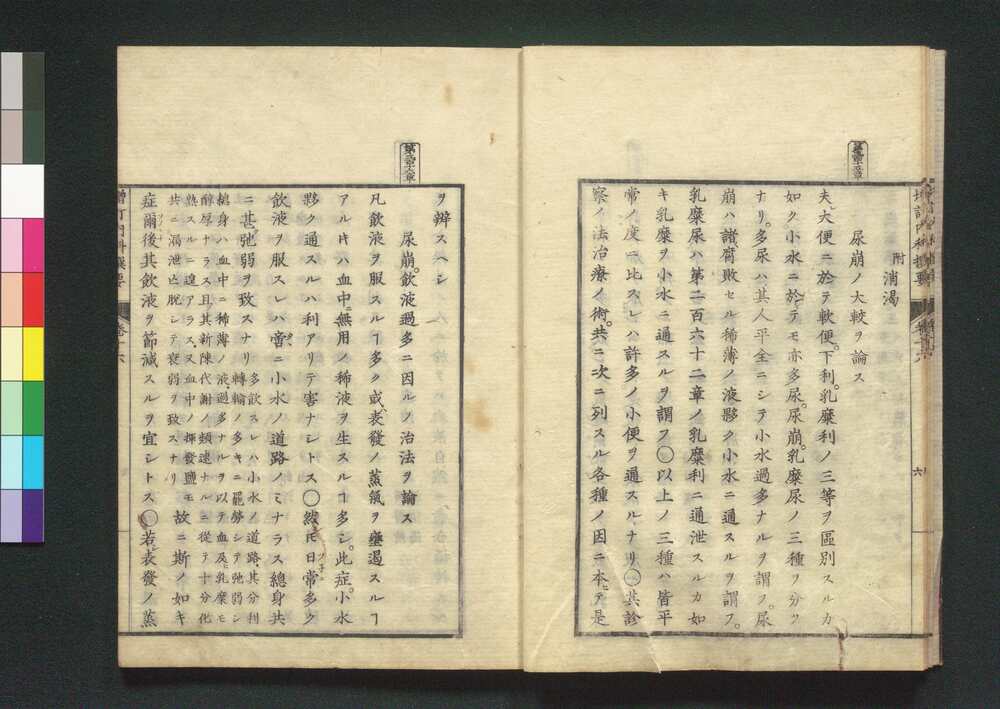 尿崩ノ大較ヲ論ス
附消渇
夫大便ニ於テ軟便。下利。乳糜利ノ三等ヲ區別スルカ
如ク小水ニ於テモ亦多尿。尿崩。乳糜尿ノ三種ヲ分ツ
ナリ。多尿ハ其人平全ニシテ小水過多ナルヲ謂フ。尿
崩ハ諸腐敗セル稀薄ノ液夥ク小水ニ通スルヲ謂フ。
乳糜尿ハ第二百六十二章ノ乳糜利ニ通泄スルカ如
キ乳糜ヲ小水ニ通スルヲ謂フ○以上ノ三種ハ皆平
常ノ度ニ比スレハ許多ノ小便ヲ通スルナリ○其診
察ノ法治療ノ術。共ニ次ニ列スル各種ノ因ニ本テ是
六
ヲ辨スヘシ
尿崩。飲液過多ニ因ルノ治法ヲ論ス
凡飲液ヲ服スルヿ多ク或ハ表發ノ蒸氣ヲ壅遏スルヿ
アルキハ血中無用ノ稀液ヲ生スルヿ多シ。此症。小水
夥ク通スルハ利アリテ害ナシトス○然𪜈日常多ク
飲液ヲ服スレハ啻ニ小水ノ道路ノミナラス總身共
ニ甚弛弱ヲ致スナリ
多飲スレハ小水ノ道路。其分利
轉輸ノ多キニ罷勞シテ弛弱シ
總身ハ血中ニ稀薄ノ液。過多ナルヲ以テ血及乳糜モ
醇厚ナラス且。其新陳代謝ノ頻速ナルニ從テ十分化
熟スルニ遑アラス又血中ノ揮發鹽モ
共ニ漏泄亡脱シテ衰弱ヲ致スナリ
故ニ斯ノ如キ
症爾後其飲液ヲ節減スルヲ宜シトス○若表發ノ蒸
増訂内科撰要
卷十六